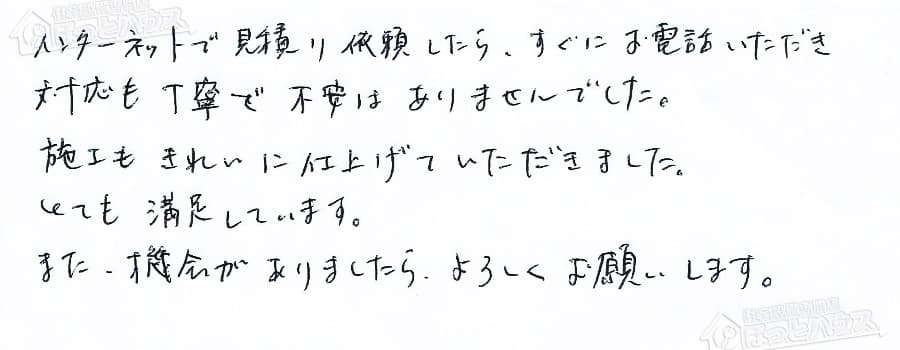 インターネットで見積り依頼したら、すぐにお電話いただき
対応も丁寧で不安はありませんでした。
施工もきれいに仕上げていただきました。
とても満足しています。
また、機会がありましたら、よろしくお願いします。
ほっとハウス